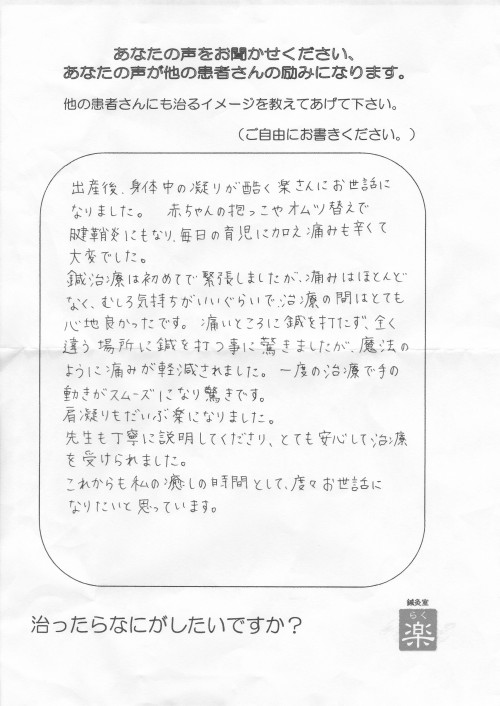 あなたの声をお聞かせください、
あなたの声が他の患者さんの励みになります。
他の患者さんにも治るイメージを教えてあげて下さい。
（ご自由にお書きください。）
出産後、身体中の凝りが酷く楽さんにお世話に
なりました。 赤ちゃんの抱っこやオムツ替えで
腱鞘炎にもなり、毎日の育児に加え痛みも辛くて
大変でした。
鍼治療は初めてで緊張しましたが、痛みはほとんど
なく、むしろ気持ちがいいぐらいで、治療の間はとても
心地良かったです。 痛いところに鍼を打たず、全く
違う場所に鍼を打つ事に驚きましたが、魔法の
ように痛みが軽減されました。 一度の治療で手の
動きがスムーズになり驚きです。
肩凝りもだいぶ楽になりました。
先生も丁寧に説明してくださり、とても安心して治療
を受けられました。
これからも私の癒しの時間として、度々お世話に
なりたいと思っています。
治ったらなにがしたいですか？
鍼灸室
らく
楽